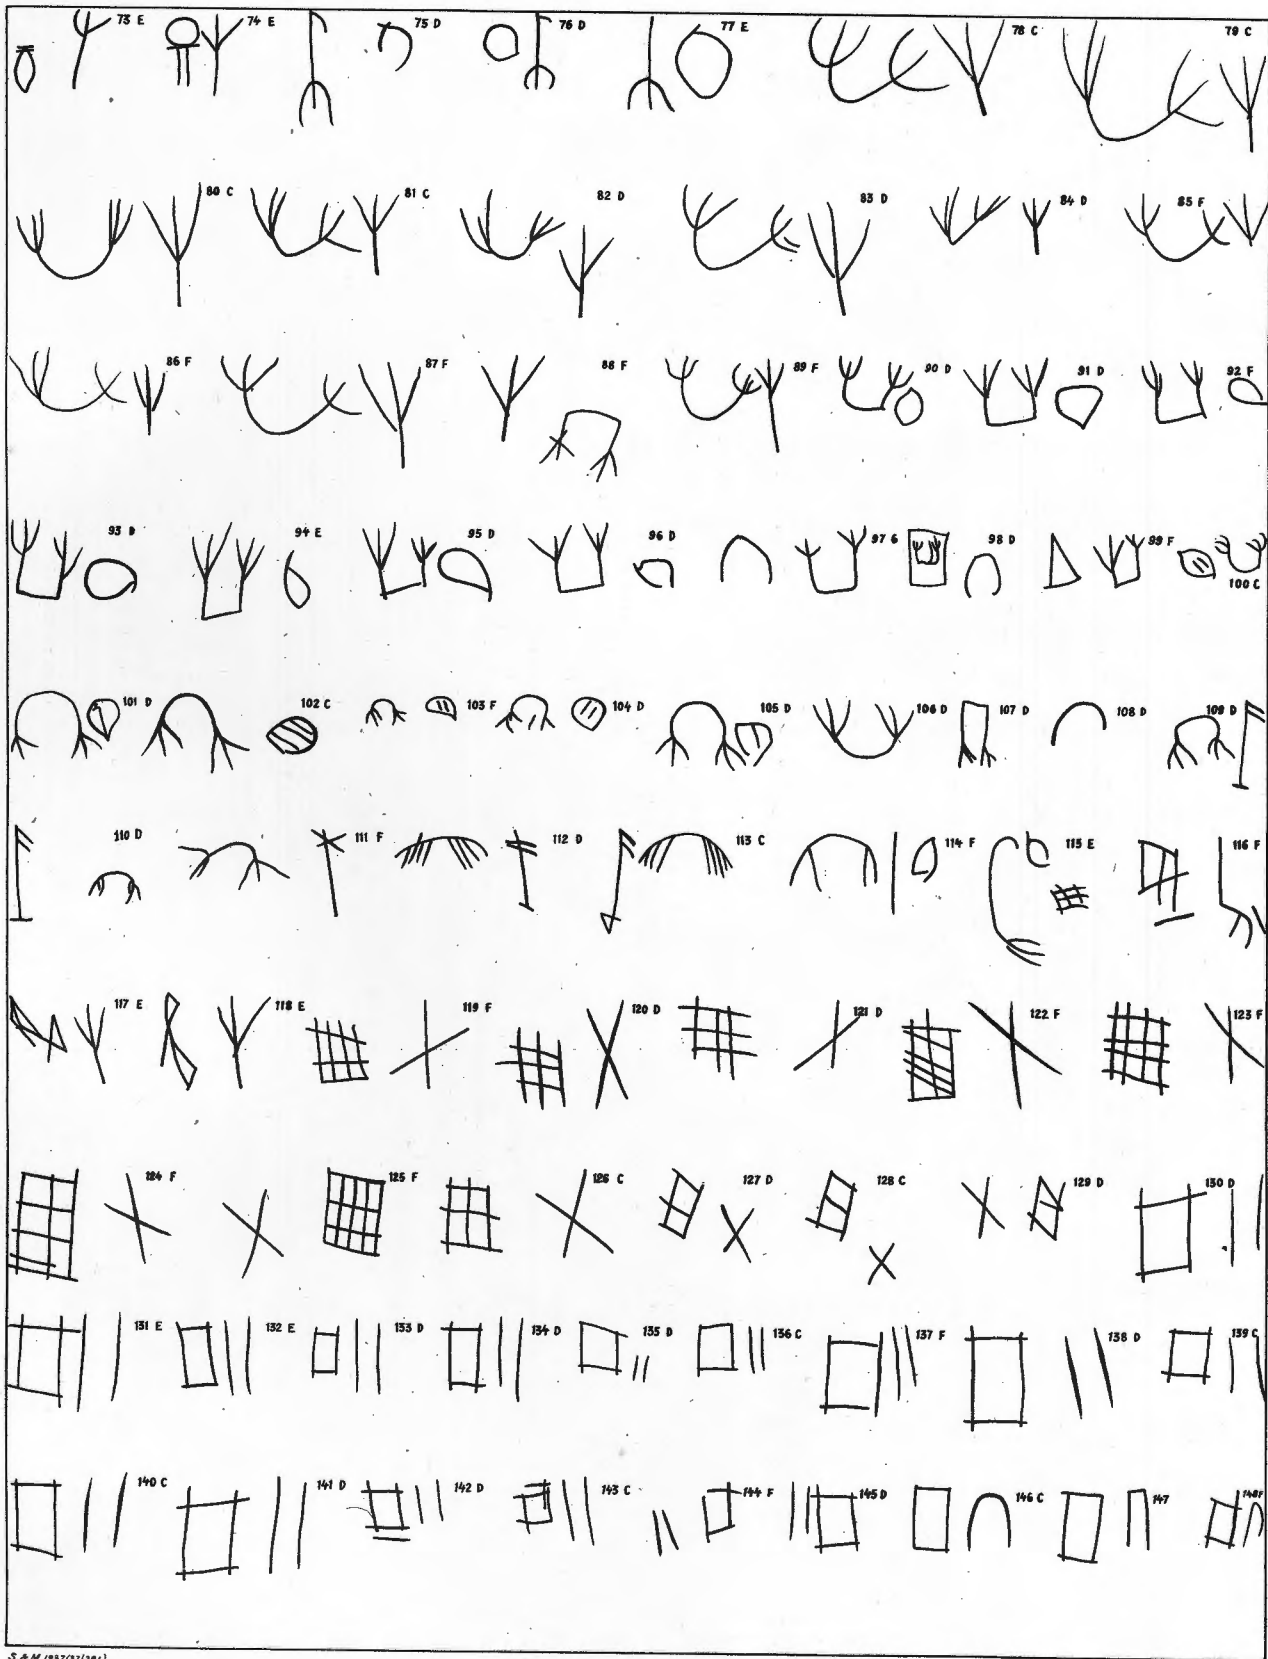 73 E 74 E 75 D 76 D 77 E 78 C 79 C
80 C 81 C 82 D 83 D 84 D 85 F
86 F 87 F 88 F 89 F 90 D 91 D 92 F
93 D 94 E 95 D 96 D 97 G 98 D 99 F 100 C
101 D 102 C 103 F 104 D 105 D 106 D 107 D 108 D 109 D
110 D 111 F 112 D 113 C 114 F 115 E 116 F
117 E 118 E 119 F 120 D 121 D 122 F 123 F
124 F 125 F 126 C 127 D 128 C 129 D 130 D
131 E 132 E 133 D 134 D 135 D 136 C 137 F 138 D 139 C
140 C 141 D 142 D 143 C 144 F 145 D 146 C 147 148 F
S & M